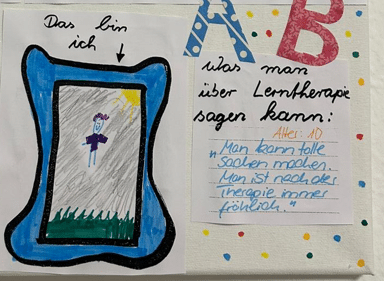 Das bin
ich
A B
Was man
über Lerntherapie
sagen kann:
Alter: 10
„Man kann tolle
Sachen machen.
Man ist nach der
Therapie immer
fröhlich."